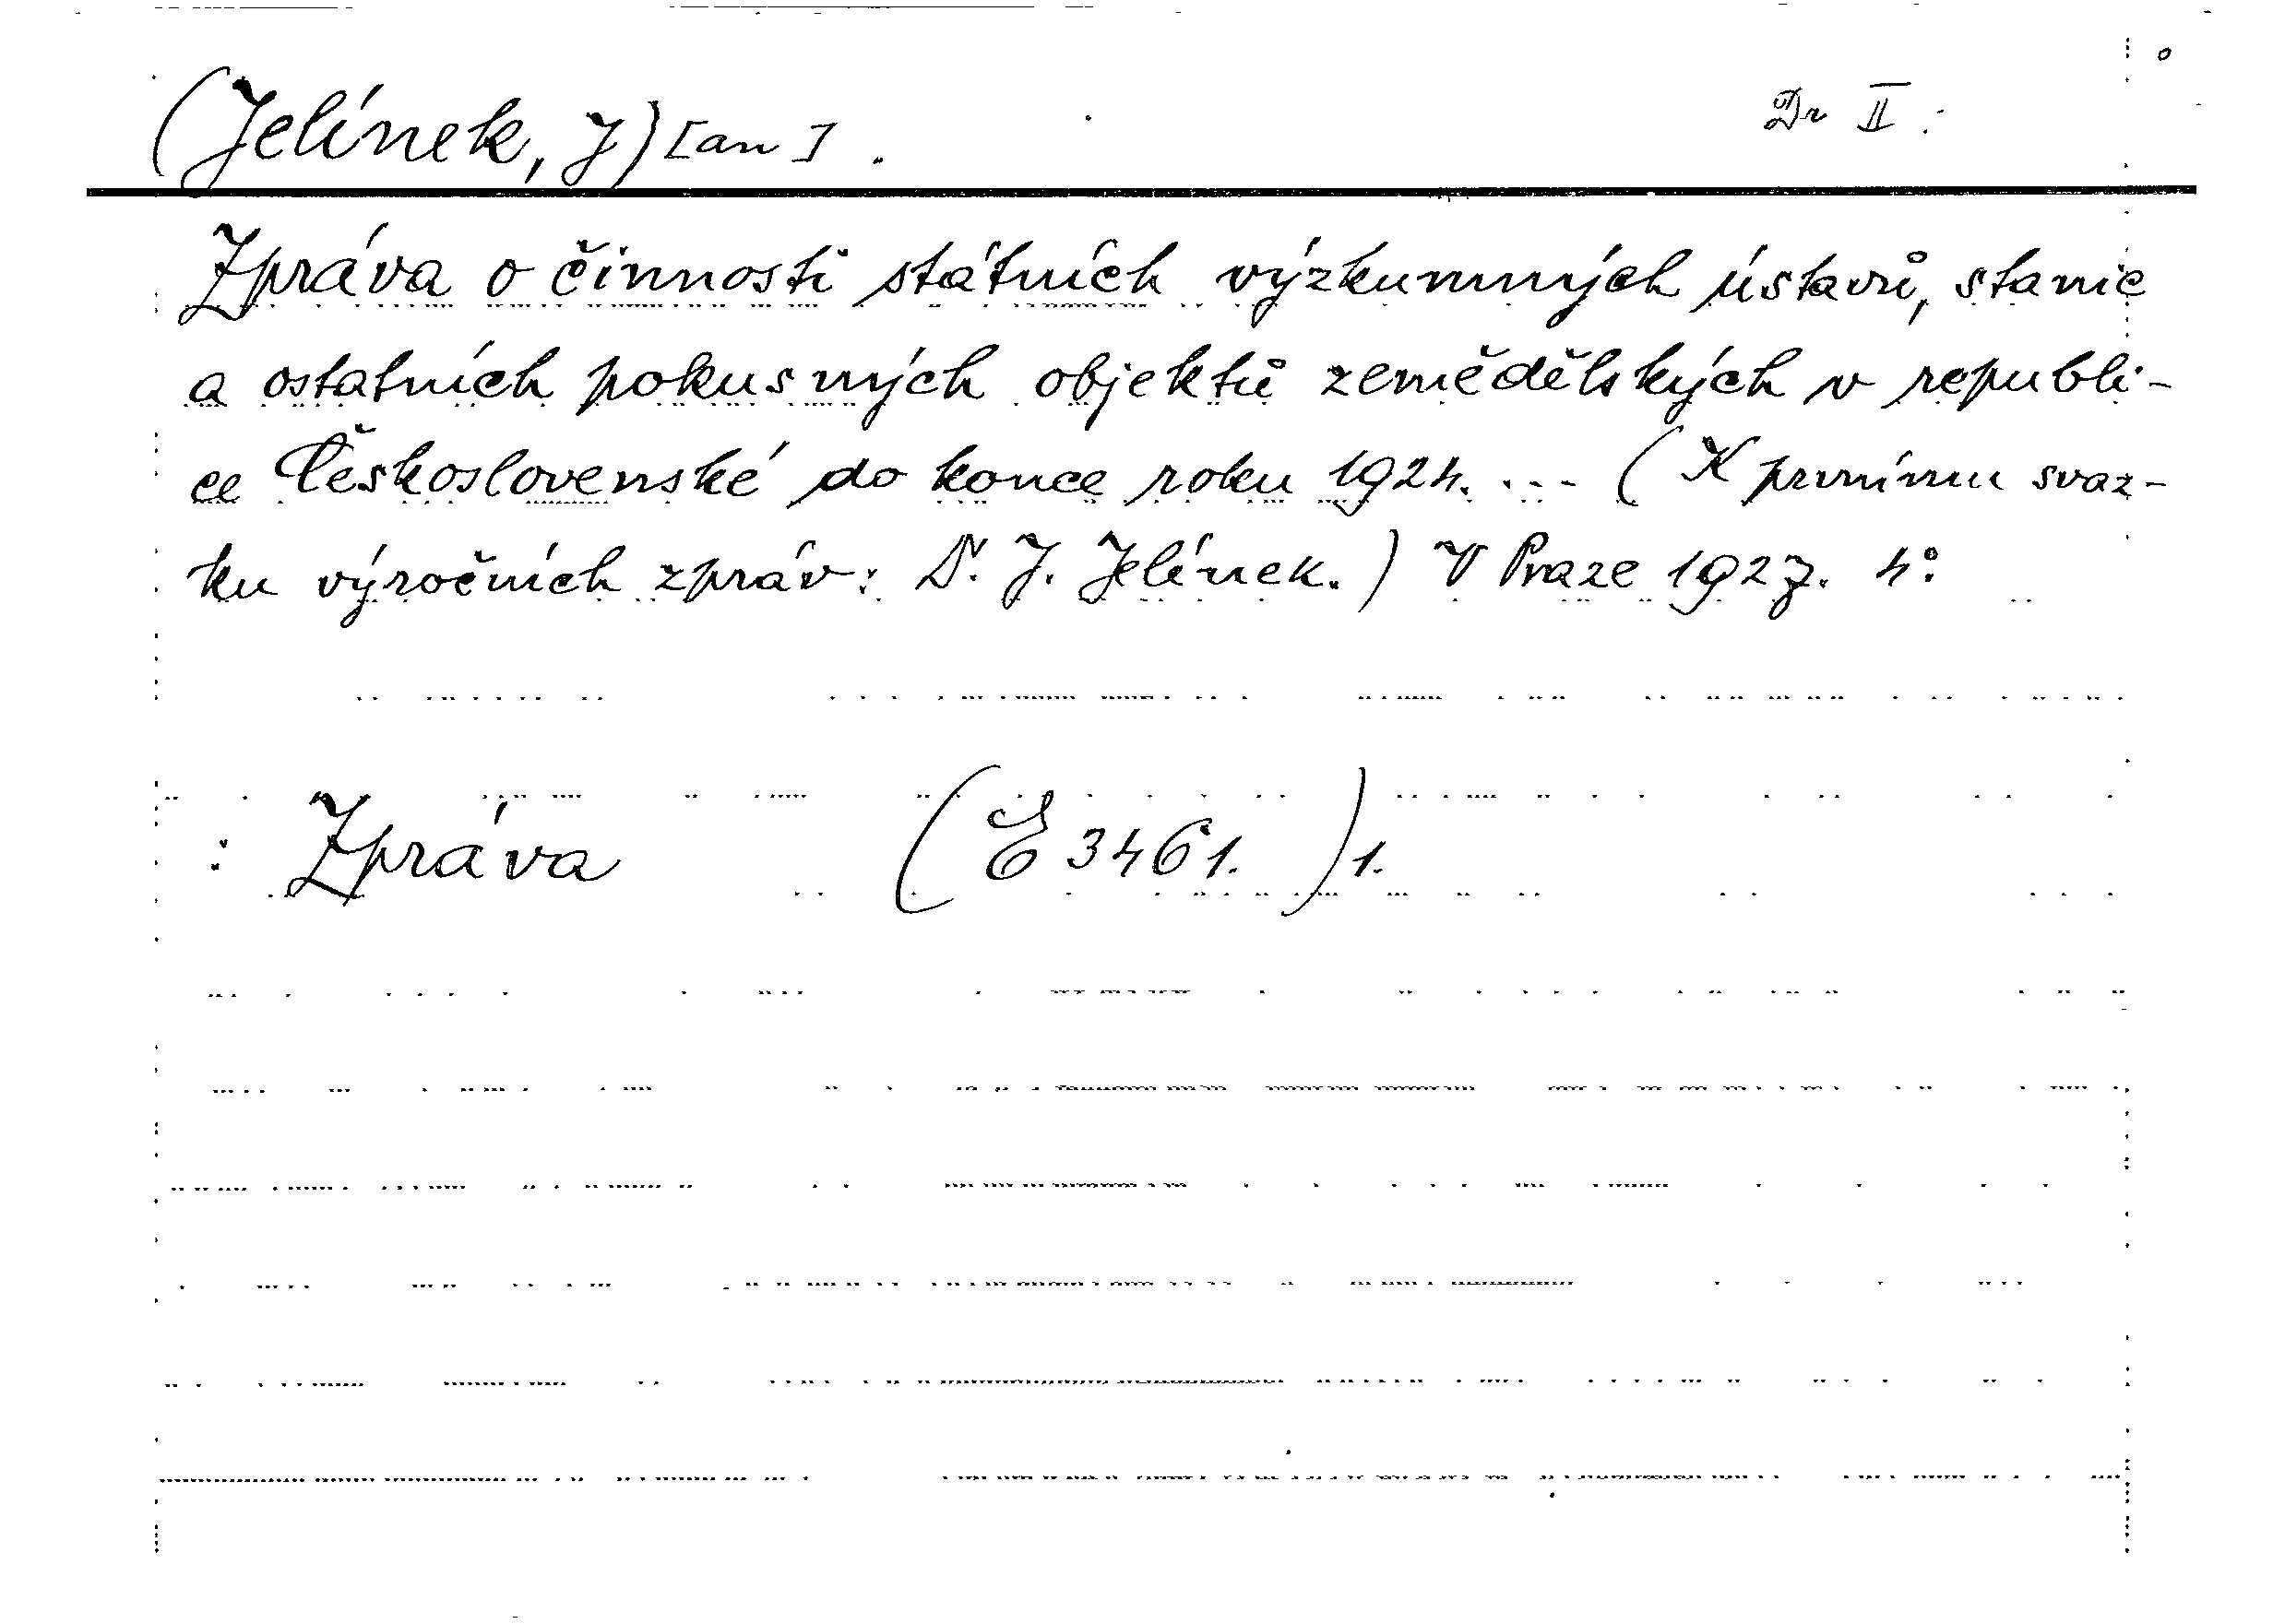 (Jelínek, J)[an]. Dr II.
Zpráva o činnosti státních výzkumných ústavů, stanic
a ostatních pokusných objektů zemědělských v republi-
ce Československé do konce roku 1924. ... (K prvnímu svaz-
ku výročních zpráv: Dr. J. Jelínek.) V Praze 1927. 4°.
: Zpráva (E 3461.)1.